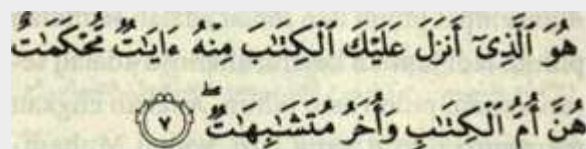 هُوَ ٱلَّذِىٓ أَنزَلَ عَلَيْكَ ٱلْكِتَٰبَ مِنْهُ ءَايَٰتٌ مُّحْكَمَٰتٌ
هُنَّ أُمُّ ٱلْكِتَٰبِ وَأُخَرُ مُتَشَٰبِهَٰتٌ ۖ ٧